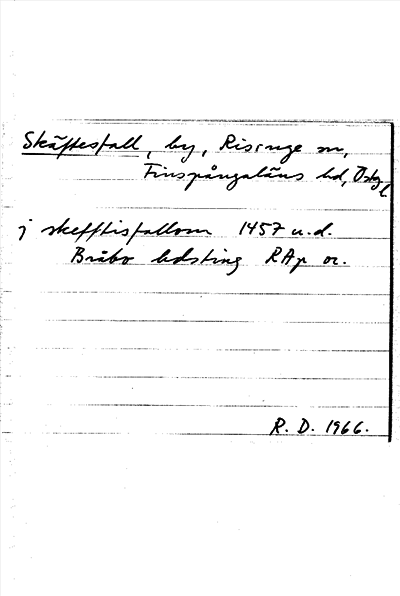 Skäftesfall, by, Risinge sn,
Finspångaläns hd, Östg l.
j skefftisfallom 1457 u.d.
Bråbo hdsting RAp or.
R. D. 1966.